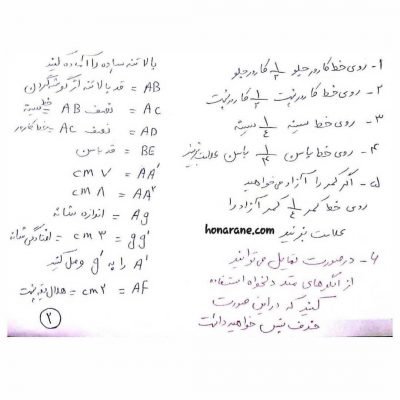 ۱- روی خط کارور جلو ۱/۲ کارور جلو
۲- روی خط کارور پشت ۱/۲ کارور پشت
۳- روی خط سینه ۱/۴ سینه
۴- روی خط باسن ۱/۴ باسن علامت بزنید
۵- اگر کمر را آزاد می‌خواهید
روی خط کمر ۱/۴ کمر آزاد را
علامت بزنید
honarane.com
۶- در صورت تمایل می‌توانید
از الگوهای متد دلخواه استفاده
کنید که در این صورت
حذف پنس خواهید داشت
بالاتنه ساده را آماده کنید
AB = قد بالاتنه از گوش گردن
AC = نصف AB خط سینه
AD = نصف AC خط کارور
BE = قد باسن
AA' = ۷ cm
AA² = ۸ cm
Ag = اندازه شانه
gg' = ۳ cm افتادگی شانه
A' را به g' وصل کنید
AF = ۲ cm = هلال یقه پشت
۲